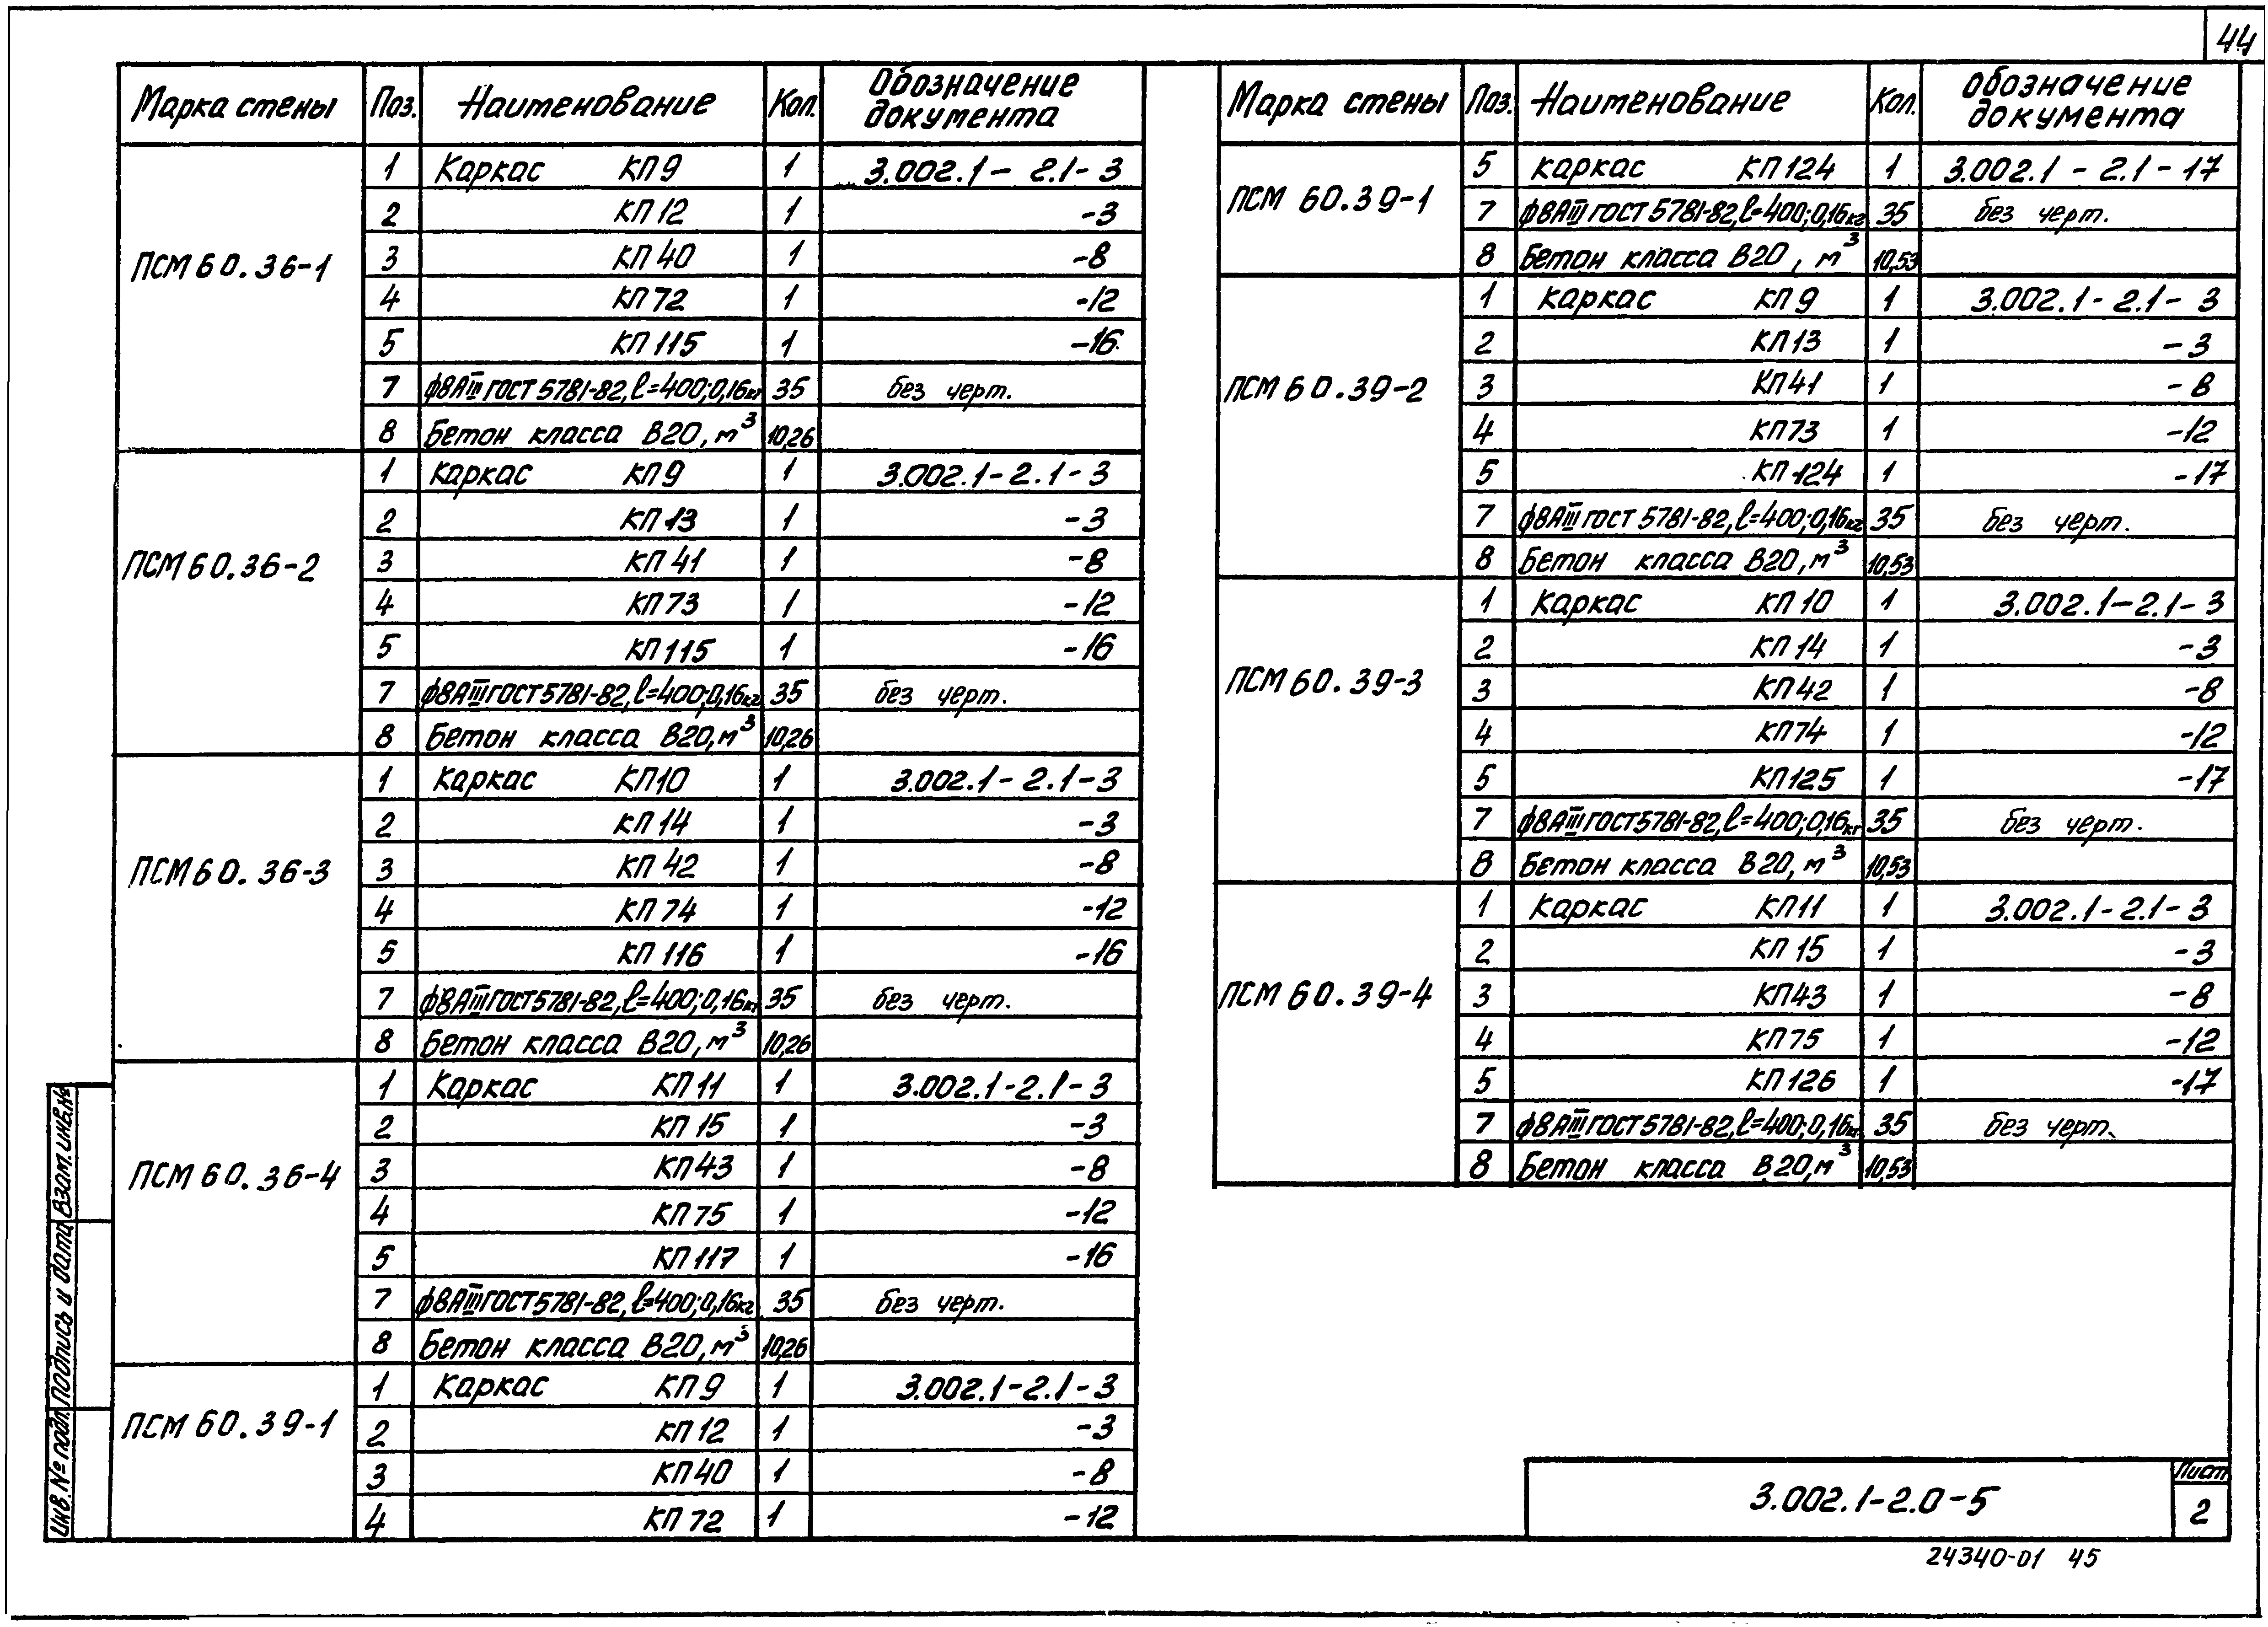 44
Марка стены Поз. Наименование Кол. Обозначение документа
ПСМ 60.36-1
1 Каркас КП 9 1 3.002.1-2.1-3
2 КП 12 1 -3
3 КП 40 1 -8
4 КП 72 1 -12
5 КП 115 1 -16
7 ф8АIII ГОСТ 5781-82, ℓ=400; 0,16кг 35 без черт.
8 Бетон класса В20, м³ 10,26
ПСМ 60.36-2
1 Каркас КП 9 1 3.002.1-2.1-3
2 КП 13 1 -3
3 КП 41 1 -8
4 КП 73 1 -12
5 КП 115 1 -16
7 ф8АIII ГОСТ 5781-82, ℓ=400; 0,16кг 35 без черт.
8 Бетон класса В20, м³ 10,26
ПСМ 60.36-3
1 Каркас КП 10 1 3.002.1-2.1-3
2 КП 14 1 -3
3 КП 42 1 -8
4 КП 74 1 -12
5 КП 116 1 -16
7 ф8АIII ГОСТ 5781-82, ℓ=400; 0,16кг 35 без черт.
8 Бетон класса В20, м³ 10,26
ПСМ 60.36-4
1 Каркас КП 11 1 3.002.1-2.1-3
2 КП 15 1 -3
3 КП 43 1 -8
4 КП 75 1 -12
5 КП 117 1 -16
7 ф8АIII ГОСТ 5781-82, ℓ=400; 0,16кг 35 без черт.
8 Бетон класса В20, м³ 10,26
ПСМ 60.39-1
1 Каркас КП 9 1 3.002.1-2.1-3
2 КП 12 1 -3
3 КП 40 1 -8
4 КП 72 1 -12
Марка стены Поз. Наименование Кол. Обозначение документа
ПСМ 60.39-1
5 Каркас КП 124 1 3.002.1-2.1-17
7 ф8АIII ГОСТ 5781-82, ℓ=400; 0,16кг 35 без черт.
8 Бетон класса В20, м³ 10,53
ПСМ 60.39-2
1 Каркас КП 9 1 3.002.1-2.1-3
2 КП 13 1 -3
3 КП 41 1 -8
4 КП 73 1 -12
5 КП 124 1 -17
7 ф8АIII ГОСТ 5781-82, ℓ=400; 0,16кг 35 без черт.
8 Бетон класса В20, м³ 10,53
ПСМ 60.39-3
1 Каркас КП 10 1 3.002.1-2.1-3
2 КП 14 1 -3
3 КП 42 1 -8
4 КП 74 1 -12
5 КП 125 1 -17
7 ф8АIII ГОСТ 5781-82, ℓ=400; 0,16кг 35 без черт.
8 Бетон класса В20, м³ 10,53
ПСМ 60.39-4
1 Каркас КП 11 1 3.002.1-2.1-3
2 КП 15 1 -3
3 КП 43 1 -8
4 КП 75 1 -12
5 КП 126 1 -17
7 ф8АIII ГОСТ 5781-82, ℓ=400; 0,16кг 35 без черт.
8 Бетон класса В20, м³ 10,53
Инв. № подл. Подпись и дата Взам. инв. №
3.002.1-2.0-5
Лист
2
24340-01 45